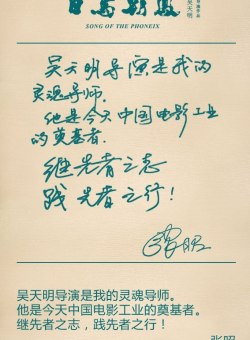 百鸟朝凤
吴天明
SONG OF THE PHONEIX
吴天明导演是我的
灵魂导师。
他是今天中国电影工业
的奠基者。
继先者之志
践先者之行!
吴天明导演是我的灵魂导师。
他是今天中国电影工业的奠基者。
继先者之志,践先者之行!